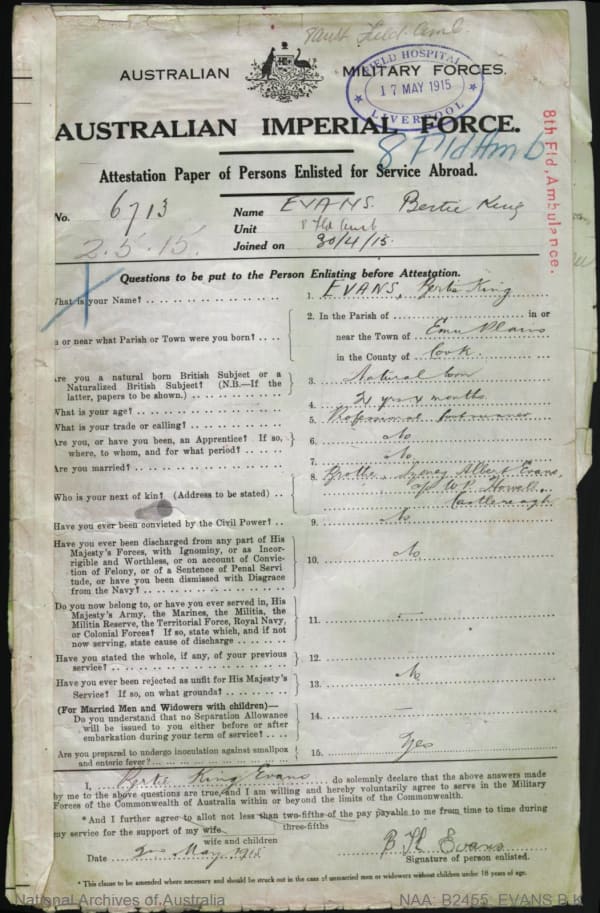 Field Amb
AUSTRALIAN MILITARY FORCES.
FIELD HOSPITAL
17 MAY 1915
LIVERPOOL
AUSTRALIAN IMPERIAL FORCE.
8 Fld Amb
8th Fld. Ambulance.
Attestation Paper of Persons Enlisted for Service Abroad.
No. 6713 Name EVANS Bertie King
Unit 8 Fld Amb
2.5.15. Joined on 30/4/15.
Questions to be put to the Person Enlisting before Attestation.
What is your Name? 1. EVANS, Bertie King
2. In the Parish of in or
In or near what Parish or Town were you born? near the Town of Emu Plains
in the County of Cook.
Are you a natural born British Subject or a
Naturalized British Subject? (N.B.—If the 3. Natural born
latter, papers to be shown.)
What is your age? 4. 21 yrs 4 months
What is your trade or calling? 5. Professional
Are you, or have you been, an Apprentice? If so, 6. No
where, to whom, and for what period?
Are you married? 7. No
8. Brother, Sydney Albert Evans,
Who is your next of kin? (Address to be stated) c/o W.P. Howell,
Castlereagh
Have you ever been convicted by the Civil Power? 9. No
Have you ever been discharged from any part of His
Majesty's Forces, with Ignominy, or as Incor-
rigible and Worthless, or on account of Convic-
tion of Felony, or of a Sentence of Penal Servi- 10. No
tude, or have you been dismissed with Disgrace
from the Navy?
Do you now belong to, or have you ever served in, His
Majesty's Army, the Marines, the Militia, the
Militia Reserve, the Territorial Force, Royal Navy, 11. —
or Colonial Forces? If so, state which, and if not
now serving, state cause of discharge
Have you stated the whole, if any, of your previous 12.
service?
Have you ever been rejected as unfit for His Majesty's 13. No
Service? If so, on what grounds?
(For Married Men and Widowers with children)—
Do you understand that no Separation Allowance 14. —
will be issued to you either before or after
embarkation during your term of service?
Are you prepared to undergo inoculation against smallpox 15. Yes
and enteric fever?
I, Bertie King Evans do solemnly declare that the above answers made
by me to the above questions are true, and I am willing and hereby voluntarily agree to serve in the Military
Forces of the Commonwealth of Australia within or beyond the limits of the Commonwealth.
*And I further agree to allot not less than two-fifths of the pay payable to me from time to time during
three-fifths
my service for the support of my wife
wife and children
Date May 1915 B K Evans
Signature of person enlisted.
*This clause to be amended where necessary and should be struck out in the case of unmarried men or widowers without children under 18 years of age.
National Archives of Australia NAA: B2455, EVANS B K